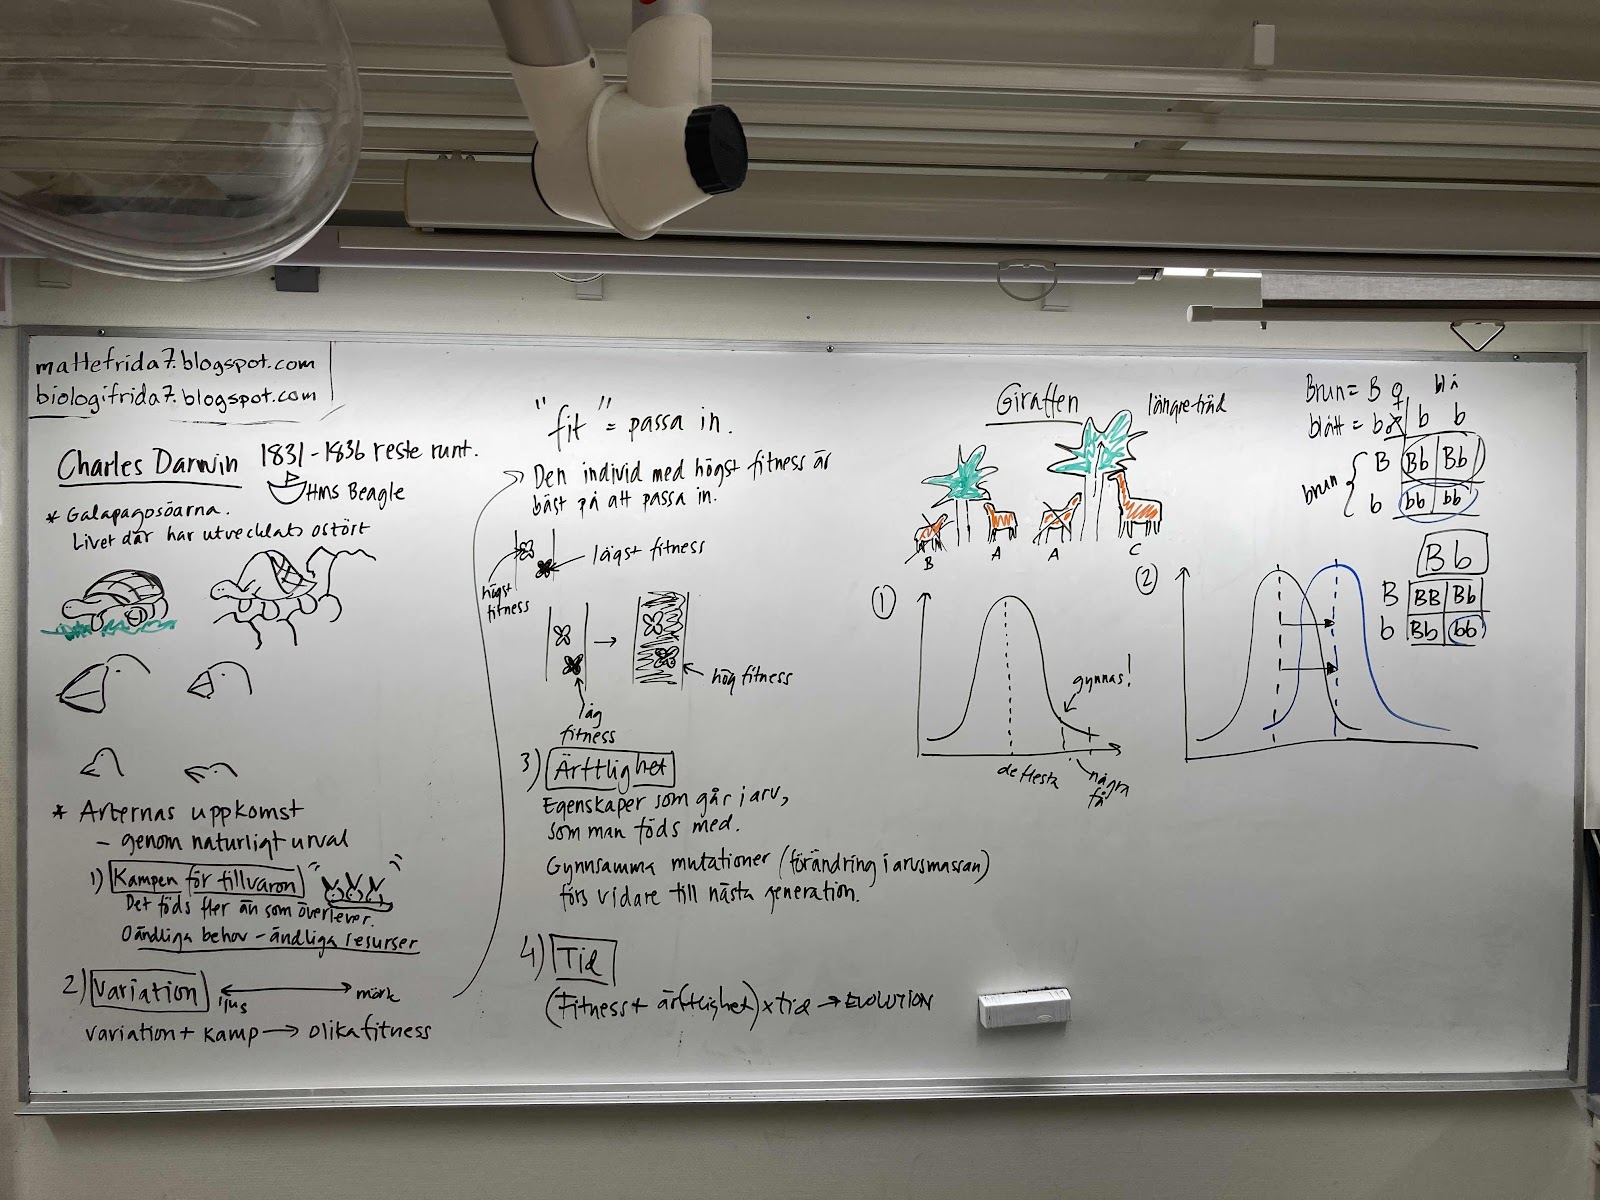 mattefrida7.blogspot.com
biologifrida7.blogspot.com
Charles Darwin
1831-1836 reste runt.
HMS Beagle
* Galapagosöarna.
Livet där har utvecklats ostört
* Arternas uppkomst
- genom naturligt urval
1) Kampen för tillvaron
Det föds fler än som överlever.
Oändliga behov - ändliga resurser
2) Variation
ljus
mörk
variation + kamp → olika fitness
"fit" = passa in.
Den individ med högst fitness är
bäst på att passa in.
högst
fitness
lägst fitness
låg
fitness
hög fitness
3) Ärftlighet
Egenskaper som går i arv,
som man föds med.
Gynnsamma mutationer (förändring i arvsmassan)
förs vidare till nästa generation.
4) Tid
(Fitness + ärftlighet) x tid → EVOLUTION
Giraffen
längre träd
B
A
A
C
1
gynnas!
de flesta
några
få
2
Brun = B ♀
blå
blått = b
b
b
brun
B
Bb
Bb
b
bb
bb
Bb
B
BB
Bb
b
Bb
bb